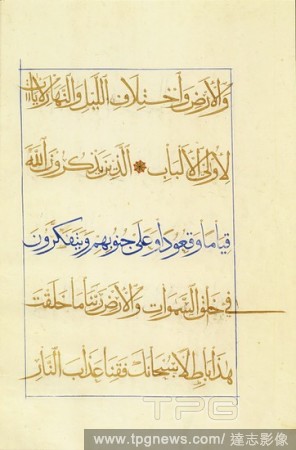 وَالْأَرْضِ وَاخْتِلَافِ اللَّيْلِ وَالنَّهَارِ لَآيَاتٍ
لِأُولِي الْأَلْبَابِ الَّذِينَ يَذْكُرُونَ اللَّهَ
قِيَامًا وَقُعُودًا وَعَلَىٰ جُنُوبِهِمْ وَيَتَفَكَّرُونَ
فِي خَلْقِ السَّمَوَاتِ وَالْأَرْضِ رَبَّنَا مَا خَلَقْتَ
هَذَا بَاطِلًا سُبْحَانَكَ فَقِنَا عَذَابَ النَّارِ
TPG
www.tpgnews.com/ 達志影像